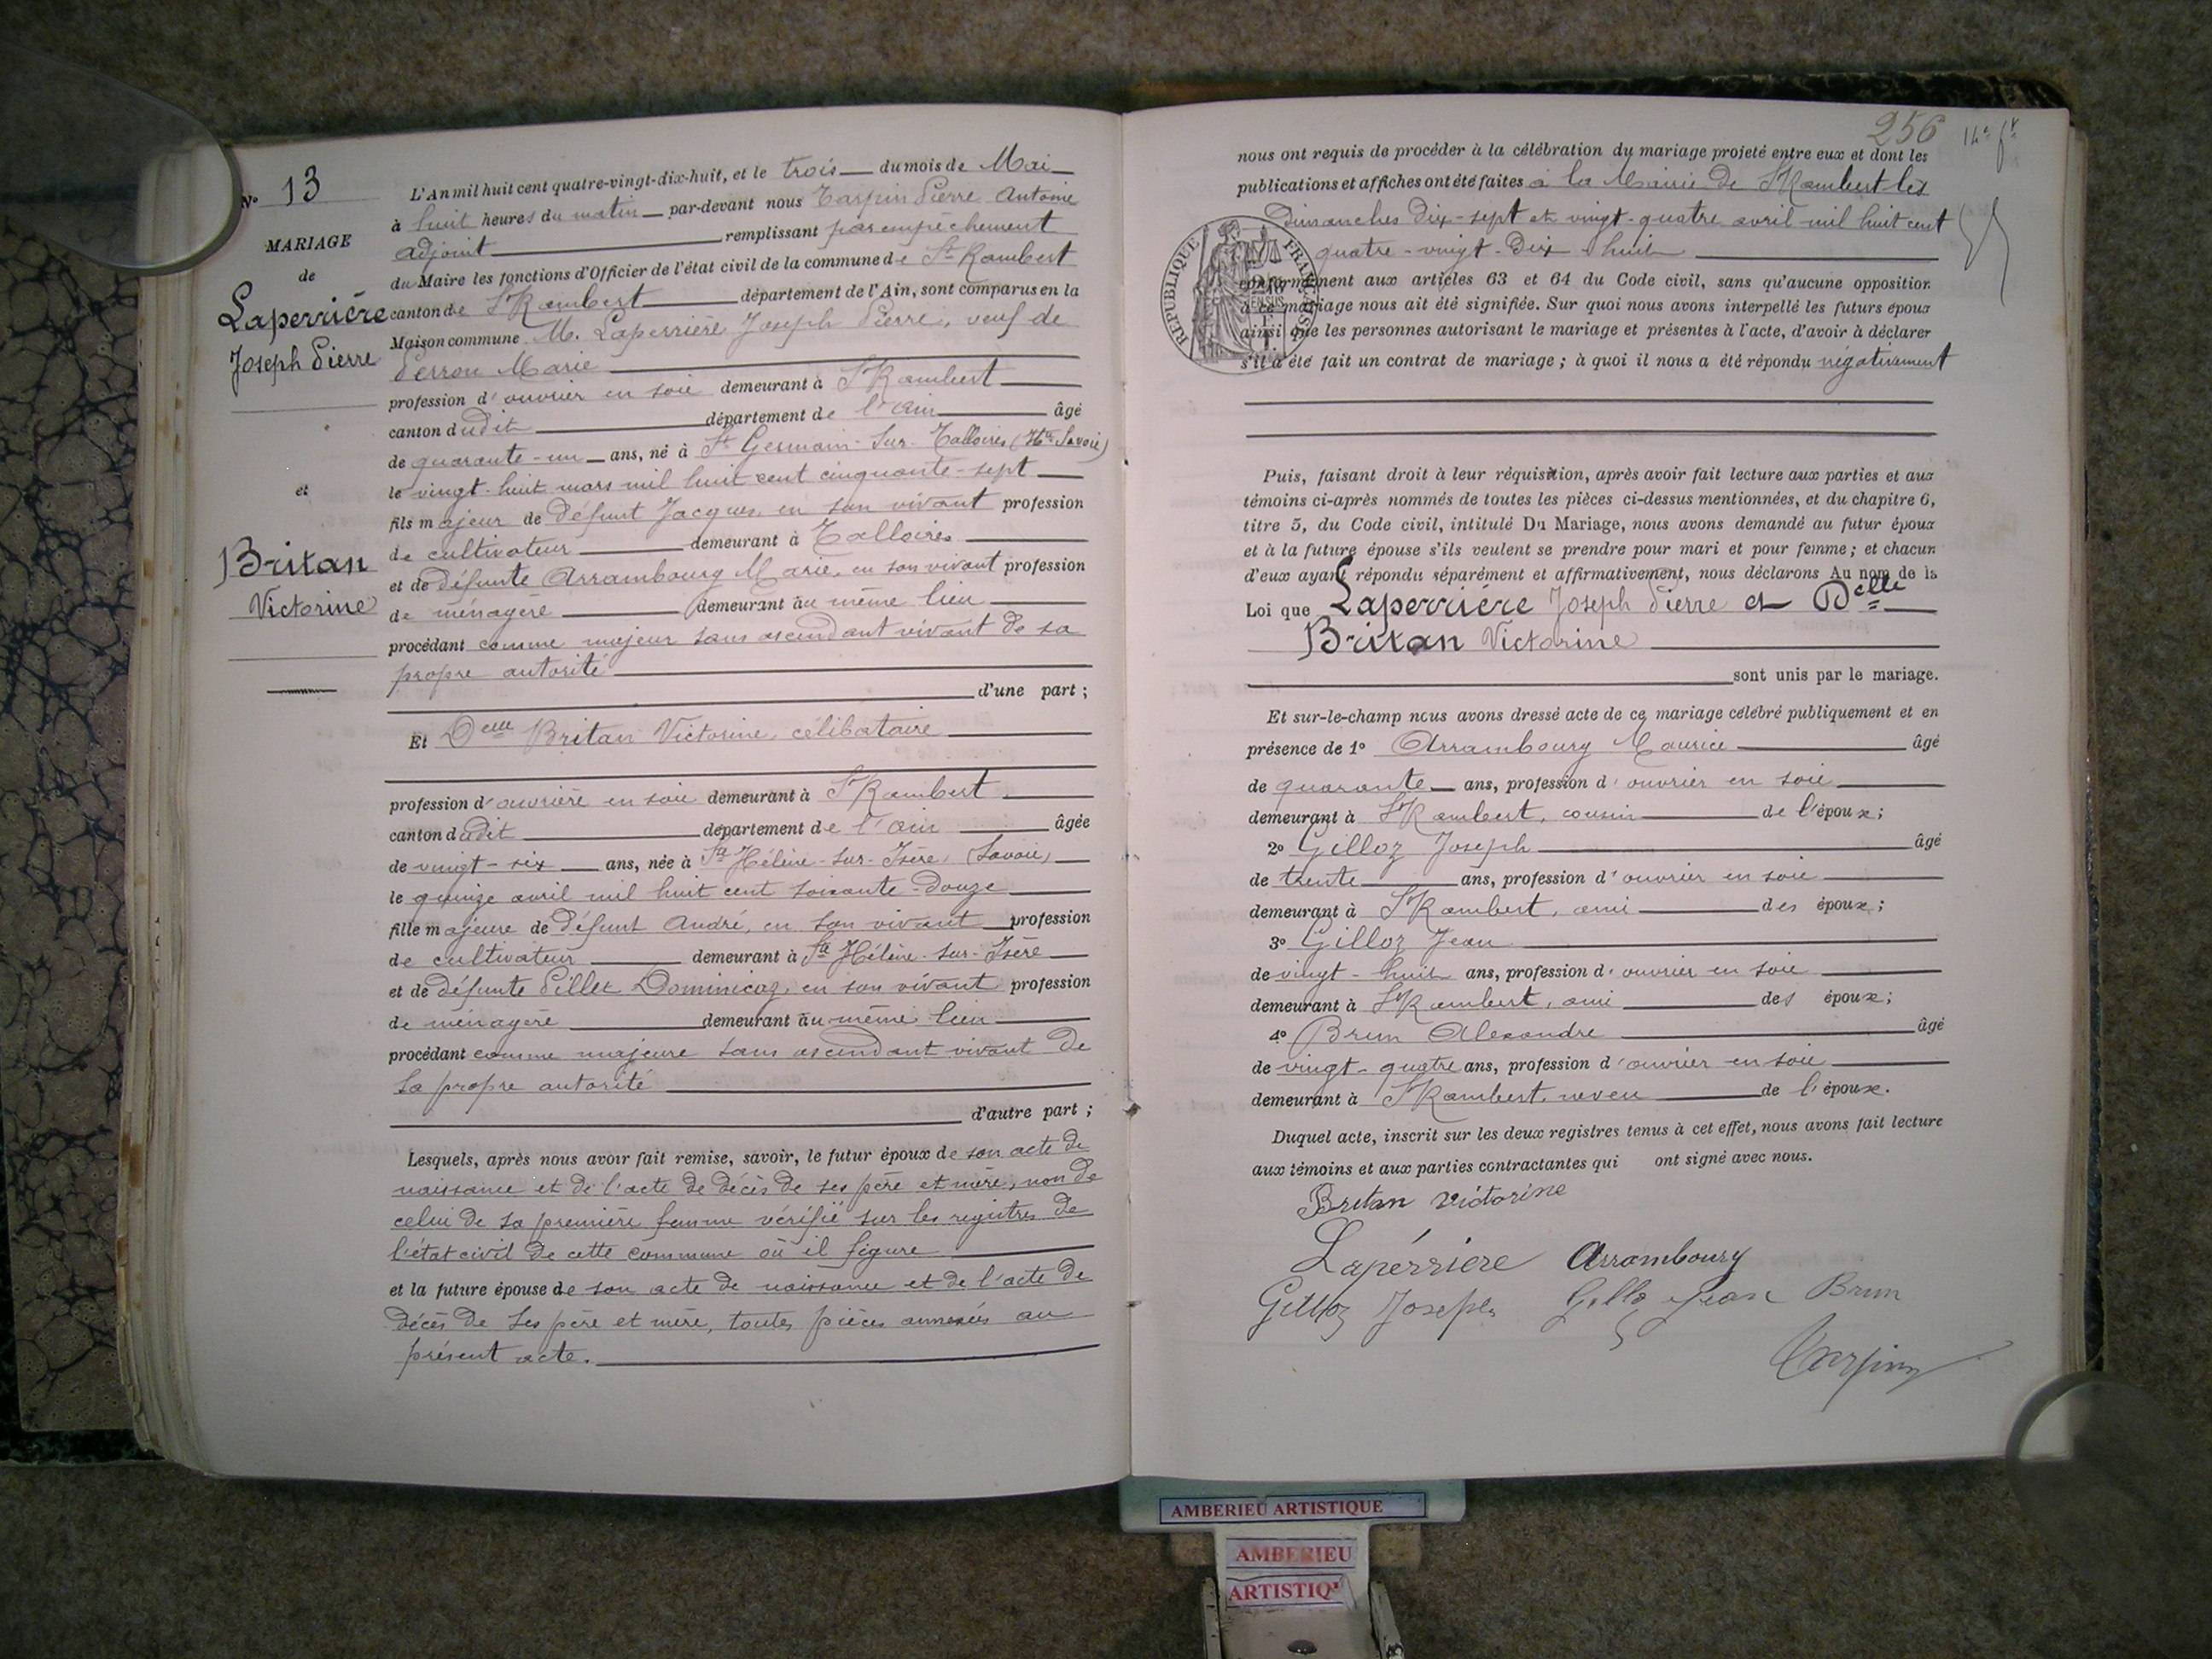 N° 13
MARIAGE
de
Laperrière
Joseph Pierre
et
Britan
Victorine
L'An mil huit cent quatre-vingt-dix-huit, et le trois du mois de Mai
à huit heures du matin par-devant nous Tarpin Pierre Antoine
adjoint remplissant par empêchement
du Maire les fonctions d'Officier de l'état civil de la commune de St Rambert
canton de St Rambert département de l'Ain, sont comparus en la
Maison commune M. Laperrière Joseph Pierre, veuf de
Perrou Marie
profession d'ouvrier en soie demeurant à St Rambert
canton dudit département de l'Ain âgé
de quarante-un ans, né à St Germain-sur-Talloires (Hte Savoie)
le vingt-huit mars mil huit cent cinquante-sept
fils majeur de défunt Jacques, en son vivant profession
de cultivateur demeurant à Talloires
et de défunte Arrambourg Marie, en son vivant profession
de ménagère demeurant au même lieu
procédant comme majeur sans ascendant vivant de sa
propre autorité
d'une part ;
Et Delle Britan Victorine, célibataire
profession d'ouvrière en soie demeurant à St Rambert
canton dudit département de l'Ain âgée
de vingt-six ans, née à Ste Hélène-sur-Isère (Savoie)
le quinze avril mil huit cent soixante-douze
fille majeure de défunt André, en son vivant profession
de cultivateur demeurant à Ste Hélène-sur-Isère
et de défunte Pillet Dominicaz, en son vivant profession
de ménagère demeurant au même lieu
procédant comme majeure sans ascendant vivant de
sa propre autorité
d'autre part ;
Lesquels, après nous avoir fait remise, savoir, le futur époux de son acte de
naissance et de l'acte de décès de ses père et mère, non de
celui de sa première femme vérifié sur les registres de
l'état civil de cette commune où il figure
et la future épouse de son acte de naissance et de l'acte de
décès de ses père et mère, toutes pièces annexées au
présent acte.
256
nous ont requis de procéder à la célébration du mariage projeté entre eux et dont les
publications et affiches ont été faites à la Mairie de St Rambert les
Dimanches dix-sept et vingt-quatre avril mil huit cent
quatre-vingt-dix huit
RÉPUBLIQUE FRANÇAISE
conformément aux articles 63 et 64 du Code civil, sans qu'aucune opposition
à ce mariage nous ait été signifiée. Sur quoi nous avons interpellé les futurs époux
ainsi que les personnes autorisant le mariage et présentes à l'acte, d'avoir à déclarer
s'il a été fait un contrat de mariage ; à quoi il nous a été répondu négativement
Puis, faisant droit à leur réquisition, après avoir fait lecture aux parties et aux
témoins ci-après nommés de toutes les pièces ci-dessus mentionnées, et du chapitre 6,
titre 5, du Code civil, intitulé Du Mariage, nous avons demandé au futur époux
et à la future épouse s'ils veulent se prendre pour mari et pour femme ; et chacun
d'eux ayant répondu séparément et affirmativement, nous déclarons Au nom de la
Loi que Laperrière Joseph Pierre et Delle
Britan Victorine
sont unis par le mariage.
Et sur-le-champ nous avons dressé acte de ce mariage célébré publiquement et en
présence de 1° Arrambourg Maurice âgé
de quarante ans, profession d'ouvrier en soie
demeurant à St Rambert, cousin de l'époux ;
2° Gilloz Joseph âgé
de trente ans, profession d'ouvrier en soie
demeurant à St Rambert, ami des époux ;
3° Gilloz Jean
de vingt-huit ans, profession d'ouvrier en soie
demeurant à St Rambert, ami des époux ;
4° Brun Alexandre âgé
de vingt-quatre ans, profession d'ouvrier en soie
demeurant à St Rambert, neveu de l'époux.
Duquel acte, inscrit sur les deux registres tenus à cet effet, nous avons fait lecture
aux témoins et aux parties contractantes qui ont signé avec nous.
Britan victorine
Laperrière Arrambourg
Gilloz Joseph Gilloz Jean Brun
Tarpin
AMBERIEU ARTISTIQUE
AMBERIEU
ARTISTIQ